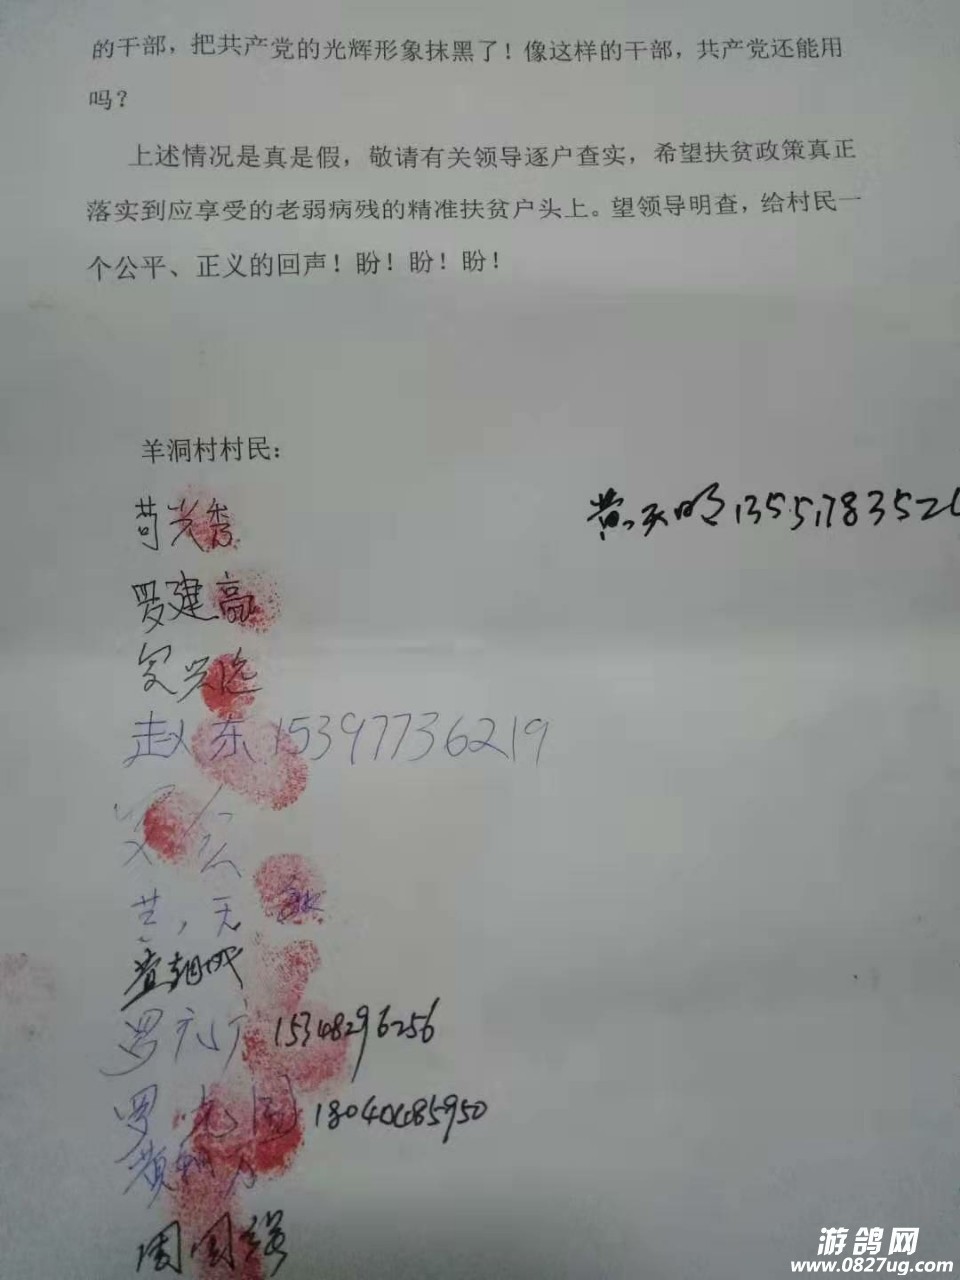 的干部，把共产党的光辉形象抹黑了！像这样的干部，共产党还能用
吗？
上述情况是真是假，敬请有关领导逐户查实，希望扶贫政策真正
落实到应享受的老弱病残的精准扶贫户头上。望领导明查，给村民一
个公平、正义的回声！盼！盼！盼！
羊洞村村民：
苟兴秀
黄天明
罗建高
赵东 15397736219
罗元广 15348296256
罗光国 18040485950
周国强
游鸽网
www.0827ug.com